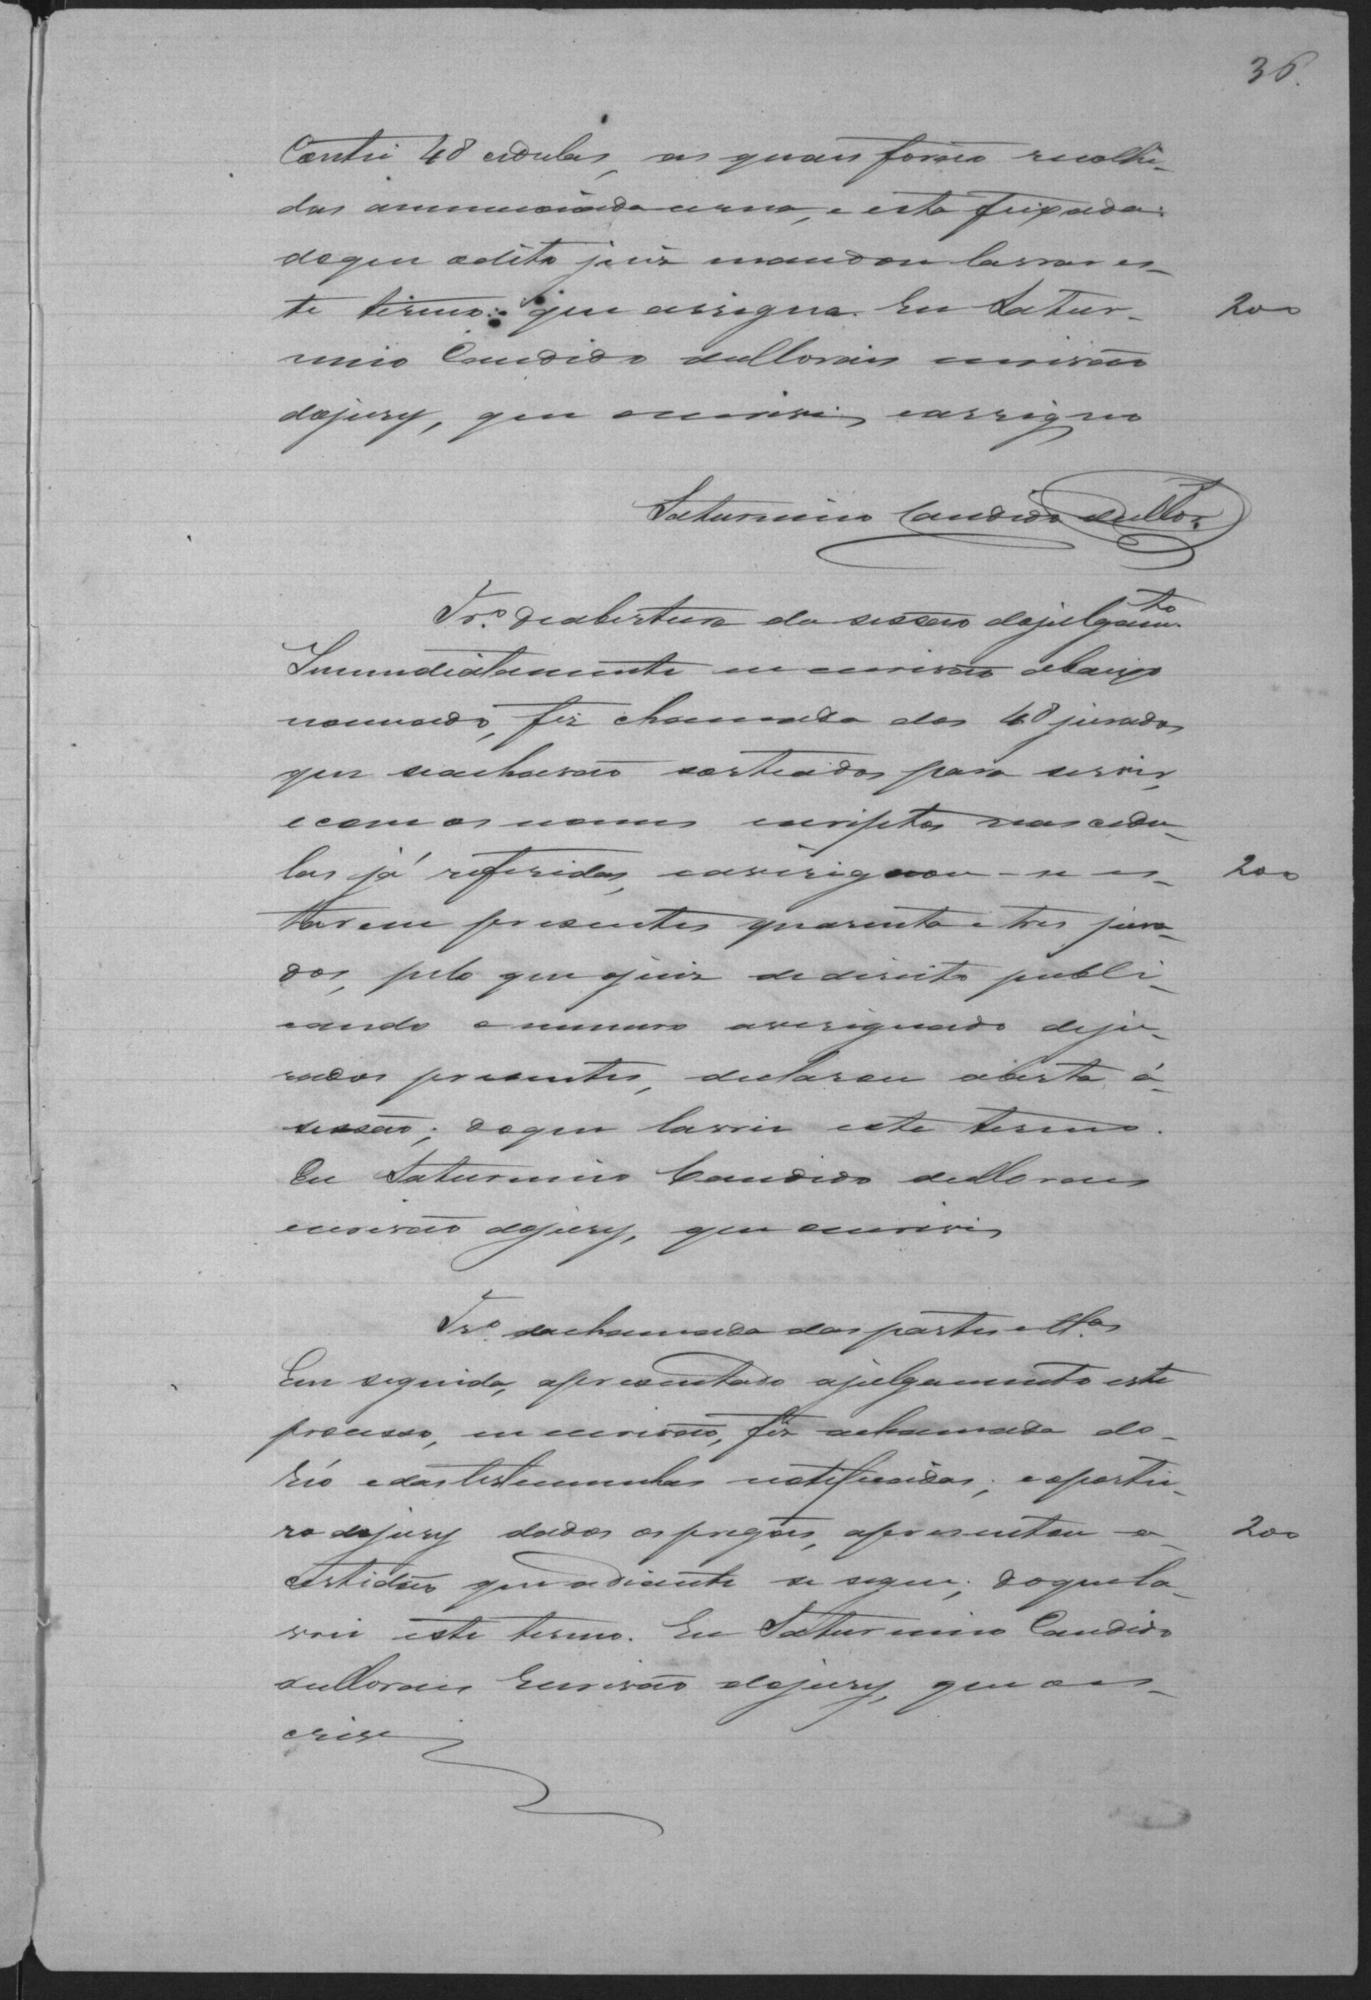 36.
Contei 48 cedulas, as quaes forão recolhi-
das ammencionada urna, e esta feixada:
doque odito juiz mandou lavrar es-
te termo: que assigna. Eu Satur- 200
nino Candido deMorais escrivão
dojury, que escrevi, eassigno
Saturnino Candido deMor.
Tr.º deabertura da sessão dojulgam.to
Immediatamente eu escrivão abaixo
nomeado, fiz chamada dos 48 jurados
que seacharão sorteados para servir,
ecom os nomes escriptos nas cedu-
las já referidas, eaveriguou-se es- 200
tarem presentes quarenta e tres jura-
dos, pelo que ojuiz dedireito publi-
cando o numero averiguado deju-
rados presentes, declarou aberta á
sessão; doque lavrei este termo.
Eu Saturnino Candido deMorais
escrivão dojury, que escrevi,
Tr.º dachamada das partes eM.as
Em seguida, apresentado ajulgamento este
processo, eu escrivão, fiz achamada do
Réo edastestemunhas notificadas; eoportei-
ro dojury dados os pregões, apresentou a 200
certidão que adiante se segue; doquela-
vrei este termo. Eu Saturnino Candido
deMorais Escrivão dojury, que oes-
crevi